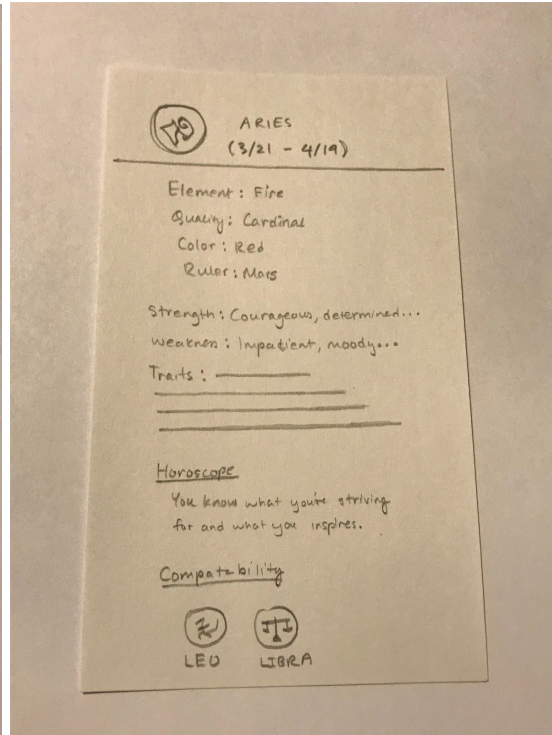 ARIES
(3/21 - 4/19)
Element: Fire
Quality: Cardinal
Color: Red
Ruler: Mars
Strength: Courageous, determined...
Weakness: Impatient, moody...
Traits:
Horoscope
You know what you're striving
for and what you inspires.
Compatability
LEO LIBRA